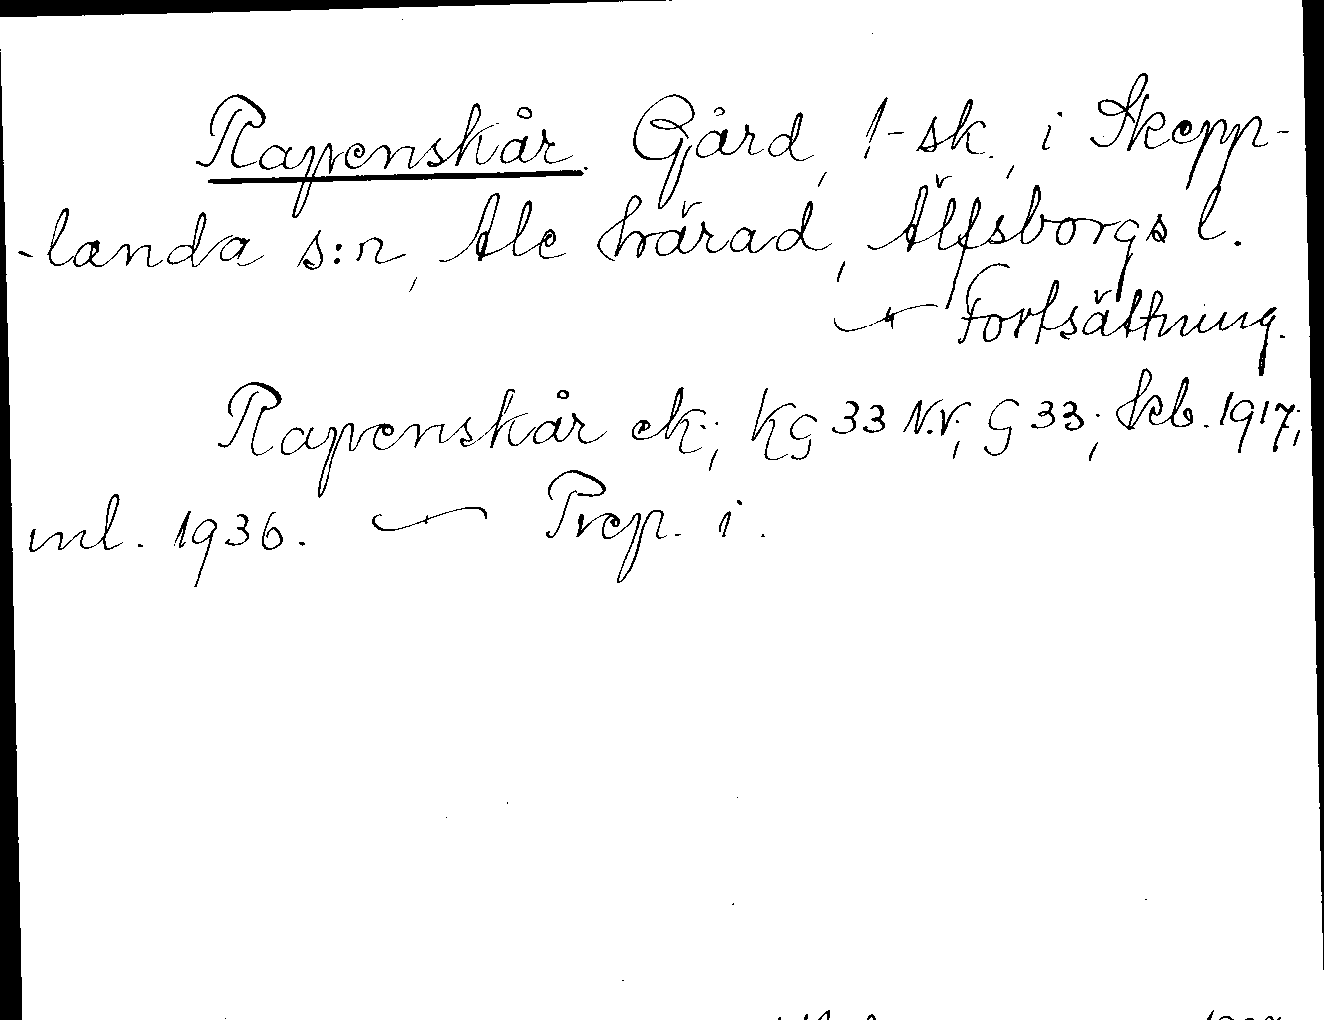 Rapenskår. Gård, 1-sk., i Skepp-
-landa s:n, Ale härad, Älfsborgs l.
— Fortsättning.
Rapenskår ek.; KG 33 N.V.; G 33; 1917;
ml. 1936. — Prep. i.